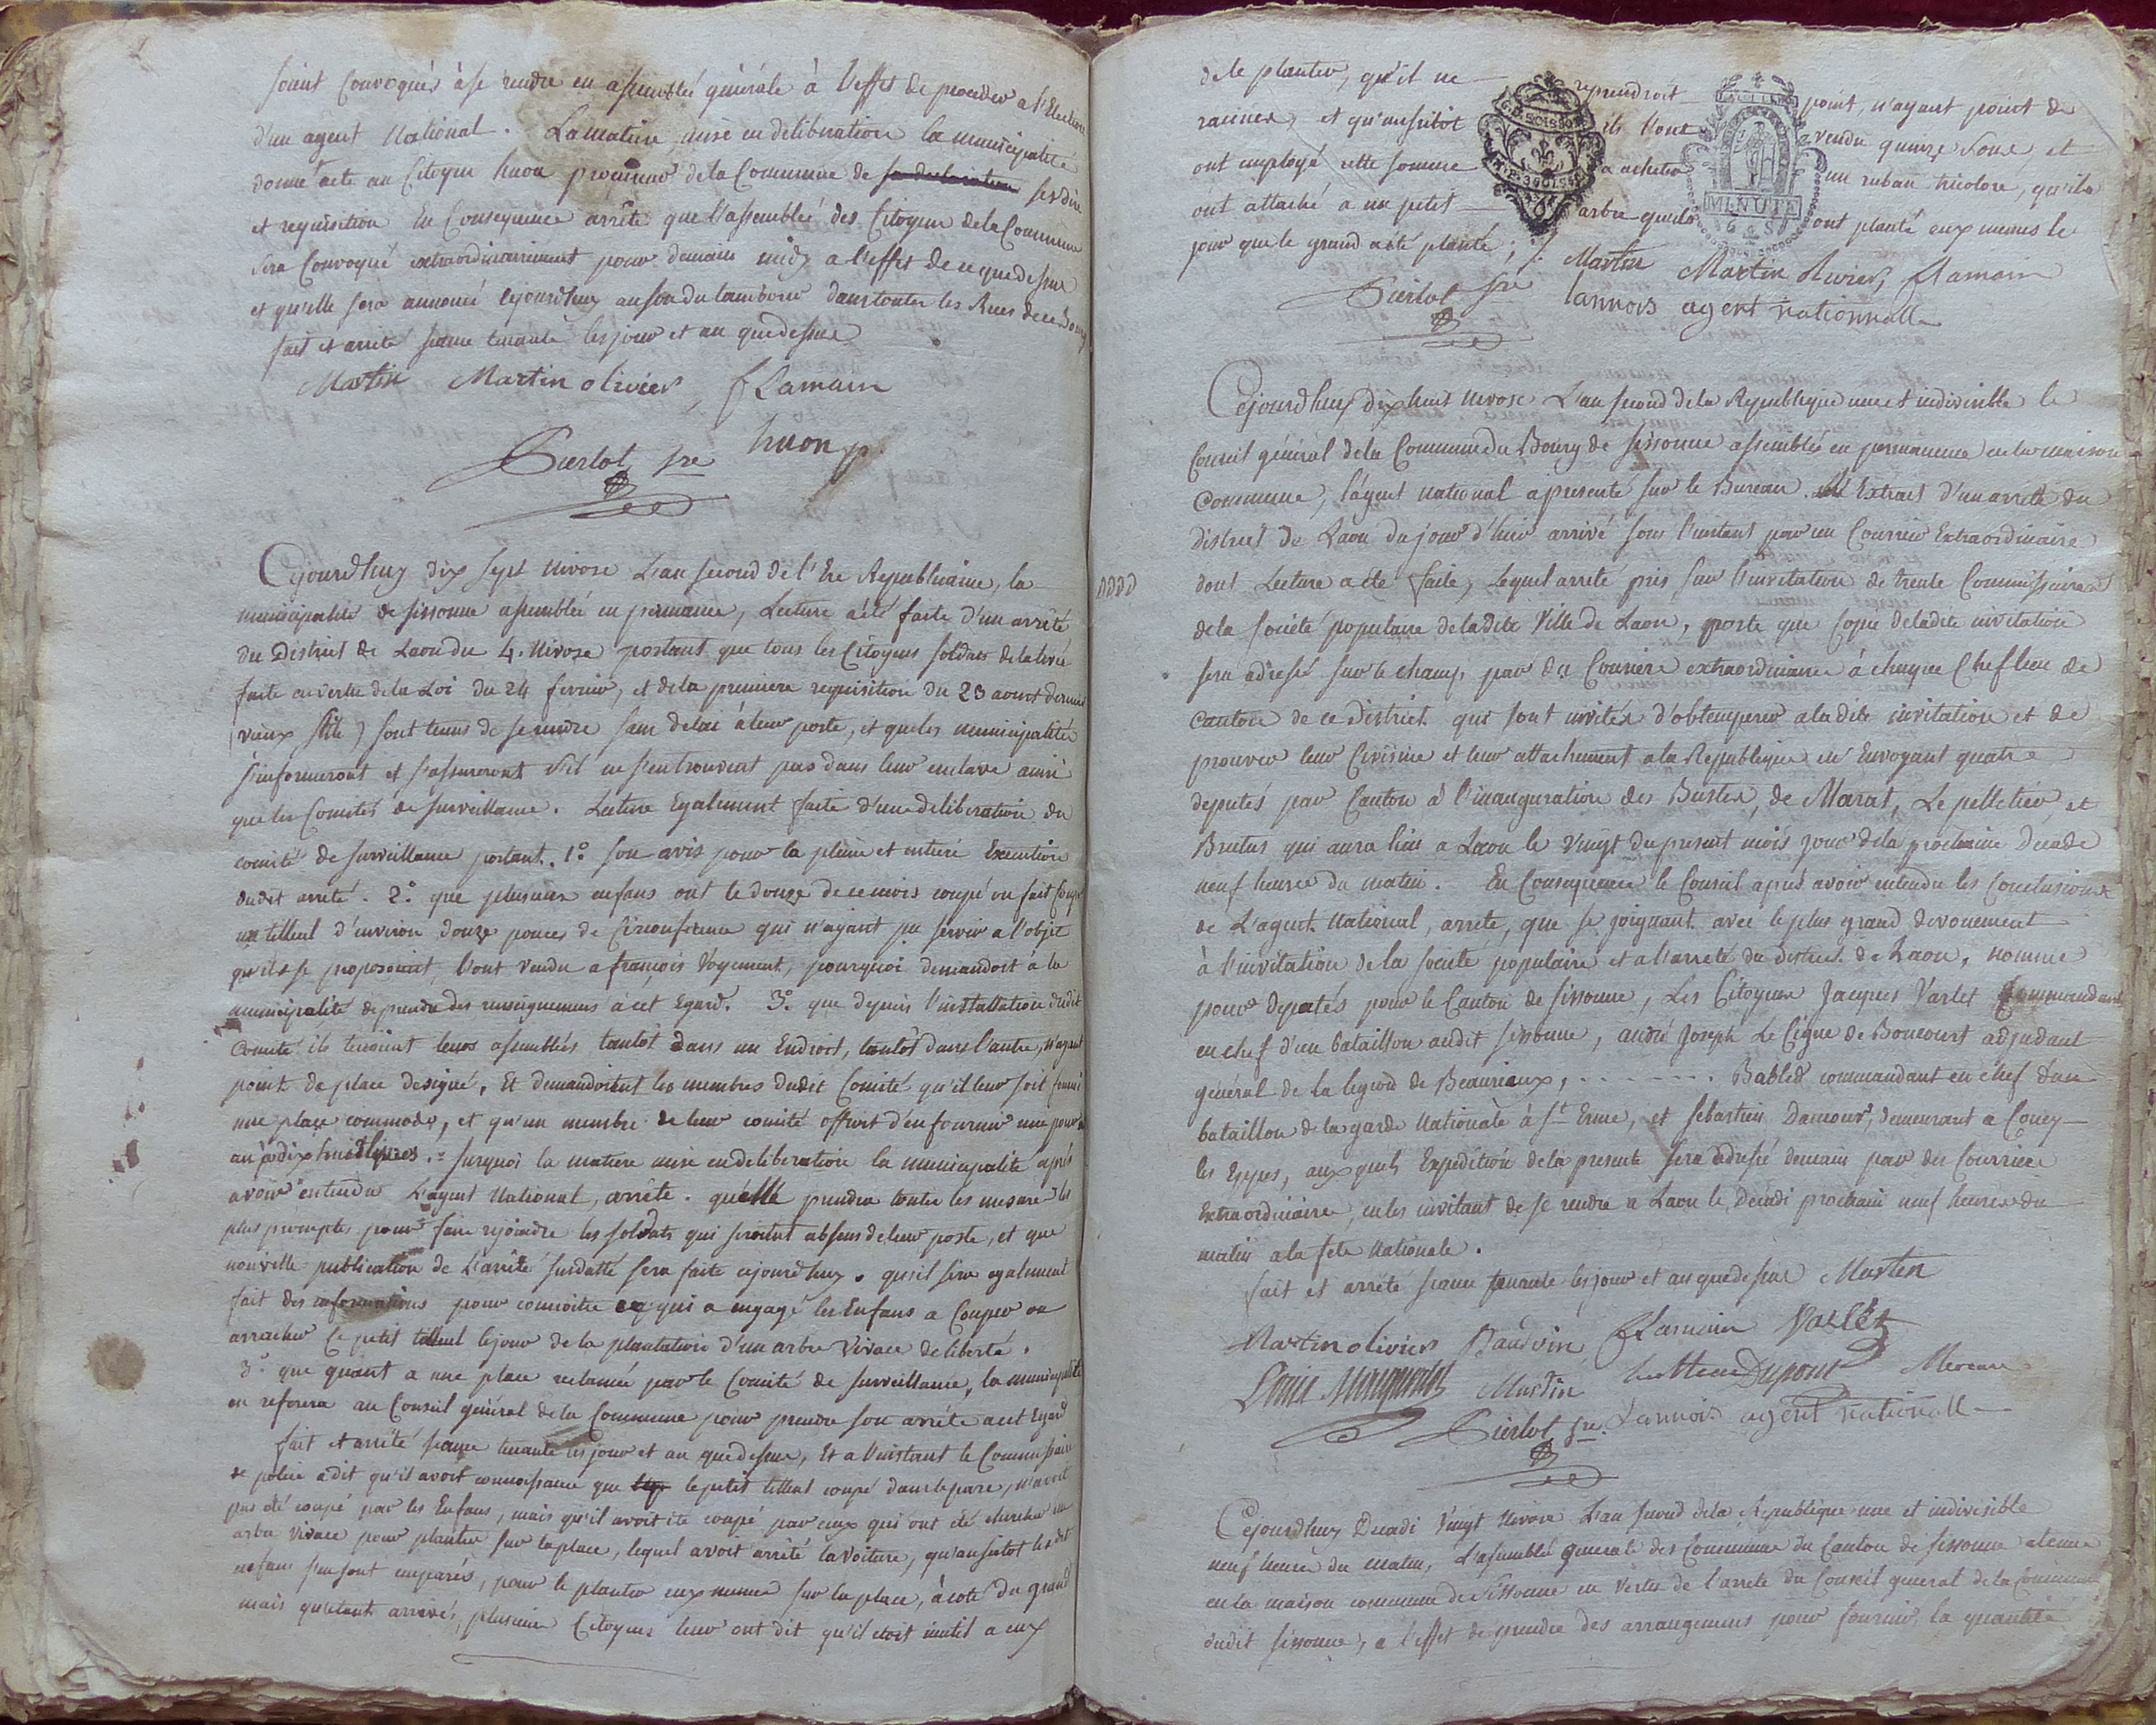 soient Convoqués à se rendre en assemblée générale à l'effet de proceder a l'Election
d'un agent National. La matiere mise en deliberation la municipalité
donne acte au Citoyen huon procureur de la Commune de sa declaration ses dire
et requisition En Consequence arrête que l'assemblée des Citoyens de la Commune
sera Convoqué extraordinairement pour demain midy a l'effet de ce que dessus
et qu'elle sera annoncé cejourdhuy au son du tambour dans toutes les Rues de ce Bourg
fait et arreté seance tenante les jour et an que dessus
Martin Martin olivier, f Lamain
Pierlot sre huon p.
Cejourdhuy dix sept nivose L'an second de l'Ere Republicaine, la
municipalité de sissonne assemblée en permanence, Lecture a été faite d'un arrêté
du District de Laon du 4. Nivose portant que tous les Citoyens soldats de la levée
faite en vertu de la Loi du 24 fevrier, et de la premiere requisition du 23 aoust dernier
(vieux stile) sont tenus de se rendre sans delai à leur poste, et que les municipalités
s'informeront et s'assureront s'il ne s'en trouvent pas dans leur enclave ainsi
que les Comités de surveillance. Lecture Egalement faite d'une deliberation du
comité de surveillance portant. 1.° son avis pour la pleine et entiere Execution
dudit arreté. 2.° que plusieurs enfans ont le douze de ce mois coupé ou fait Couper
un tilleul d'environ douze pouces de Circonference qui n'ayant pu servir a l'objet
qu'ils se proposoient, l'ont vendu a françois Voyement, pourquoi demandoit à la
municipalité de prendre des renseignemens a cet Egard. 3.° que depuis l'installation dudit
Comité ils tenoient leurs assemblées, tantôt dans un Endroit, tantôt dans l'autre, n'ayant
point de place designé, Et demandoient les membres dudit Comité qu'il leur soit fourni
une place commode, et qu'un membre de leur comité offroit d'en fournir une pour un
an à dix huit livres. = surquoi la matiere mise en deliberation la municipalité après
avoir entendu L'agent National, arrête. qu'elle prendra toutes les mesures les
plus promptes pour faire rejoindre les soldats qui seroient absens de leur poste, et que
nouvelle publication de L'arrêté susdatté sera faite cejourdhuy. qu'il sera egalement
fait des informations pour connoitre ce qui a engagé les Enfans a Couper ou
arracher le petit tilleul le jour de la plantation d'un arbre Vivace de liberté.
3.° que quant a une place reclamée par le Comité de surveillance, la municipalité
en referera au Conseil général de la Commune pour prendre son arrêté a cet Egard
fait et arrêté seance tenante les jour et an que dessus, Et a l'instant le Commissaire
de police a dit qu'il avoit connoissance que le petit tilleul coupé dans le parc, n'avoit
pas été coupé par les Enfans, mais qu'il avoit été coupé par ceux qui ont été chercher un
arbre vivace pour planter sur la place, lequel avoit arrêté la voiture, qu'aussitot les dit
enfans s'en sont emparés, pour le planter eux memes sur la place, à coté du grand
mais qu'etant arrivés, plusieurs Citoyens leur ont dit qu'il etoit inutil a eux
de le planter, qu'il ne reprendroit point, n'ayant point de
racines, et qu'aussitot ils l'ont vendu quinze sous et
ont employé cette somme a acheter un ruban tricolore, qu'ils
ont attaché a un petit arbre quils ont planté eux memes le
jour que le grand a été planté;
G.D. SOISSONS
MINUTE
6 S
Martin Martin Olivier, f Lamain
Pierlot sre Lannois agent nationnalle
Cejourdhuy dix huit nivose L'an second de la Republique une et indivisible le
Conseil général de la Commune du Bourg de sissonne assemblée en permanence en la maison
Commune, l'agent national a presenté sur le Bureau. Extrait d'un arrêté du
district de Laon du jour d'hier arrivé sous l'instant par un Courrier Extraordinaire
dont Lecture a été faite, lequel arreté pris sur l'invitation de trente Commissaires
de la societé populaire de ladite Ville de Laon, porte que Copie de ladite invitation
sera adressé sur le champ, par des Couriers extraordinaires à chaque Chef lieu de
Canton de ce District qui sont invités d'obtemperer a ladite invitation et de
prouver leur Civisme et leur attachement a la Republique en Envoyant quatre
deputés par Canton à l'inauguration des Bustes, de Marat, Le pelletier, et
Brutus qui aura lieu a Laon le Vingt du present mois jour de la prochaine Decade
neuf heures du matin. En Consequence le Conseil après avoir entendu les Conclusions
de L'agent National, arrête, que se joignant avec le plus grand devouement
à l'invitation de la societé populaire et a l'arreté du district de Laon, nomme
pour deputés pour le Canton de sissonne, Les Citoyens Jacques Varlet Commandant
en chef d'un bataillon audit sissonne, andré Joseph Le Cigne de Boncourt adjudant
général de la legion de Beaurieux, . . . . . . . Bablet commandant en chef d'un
bataillon de la garde Nationale à St Erme, et sébastien Damour, demeurant a Coucy
les Eppes, aux quels Expedition de la presente sera adressé demain par des Courriers
Extraordinaires, en les invitant de se rendre a Laon le Decadi prochain neuf heures du
matin a la fete Nationale.
fait et arreté seance tenante les jour et an que dessus Martin
Martin olivier Baudvin f Lamain Varlet
Louis Martin Dupont Mereau
Pierlot sre. Lannois agent nationall
Cejourdhuy Decadi Vingt Nivose L'an second de la Republique une et indivisible
neuf heures du matin, L'assemblée generale des Communes du Canton de sissonne a tenue
en la maison commune de Sissonne en vertu de l'arreté du Conseil general de la Commune
dudit sissonne, a l'effet de prendre des arrangemens pour fournir la quantité